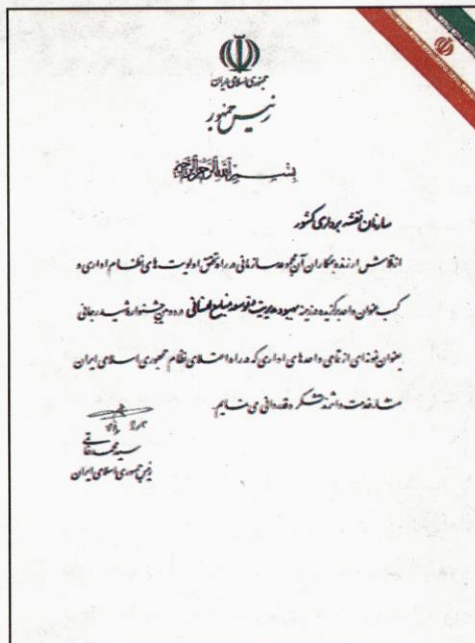 جمهوری اسلامی ایران
رئیس جمهور
بسم الله الرحمن الرحیم
سازمان نقشه برداری کشور
از تلاش ارزنده همکاران آن مجموعه سازمانی در راه تحقق اولویت های نظام اداری و
کسب عنوان واحد برگزیده در زمینه بهبود مدیریت و توسعه منابع انسانی در دومین جشنواره شهید رجائی
بعنوان نمونه‌ای از تمامی واحدهای اداری که در راه اعتلای نظام جمهوری اسلامی ایران
منشاء خدمت بوده‌اند تشکر و قدردانی می نمایم.
سید محمد خاتمی
رئیس جمهوری اسلامی ایران